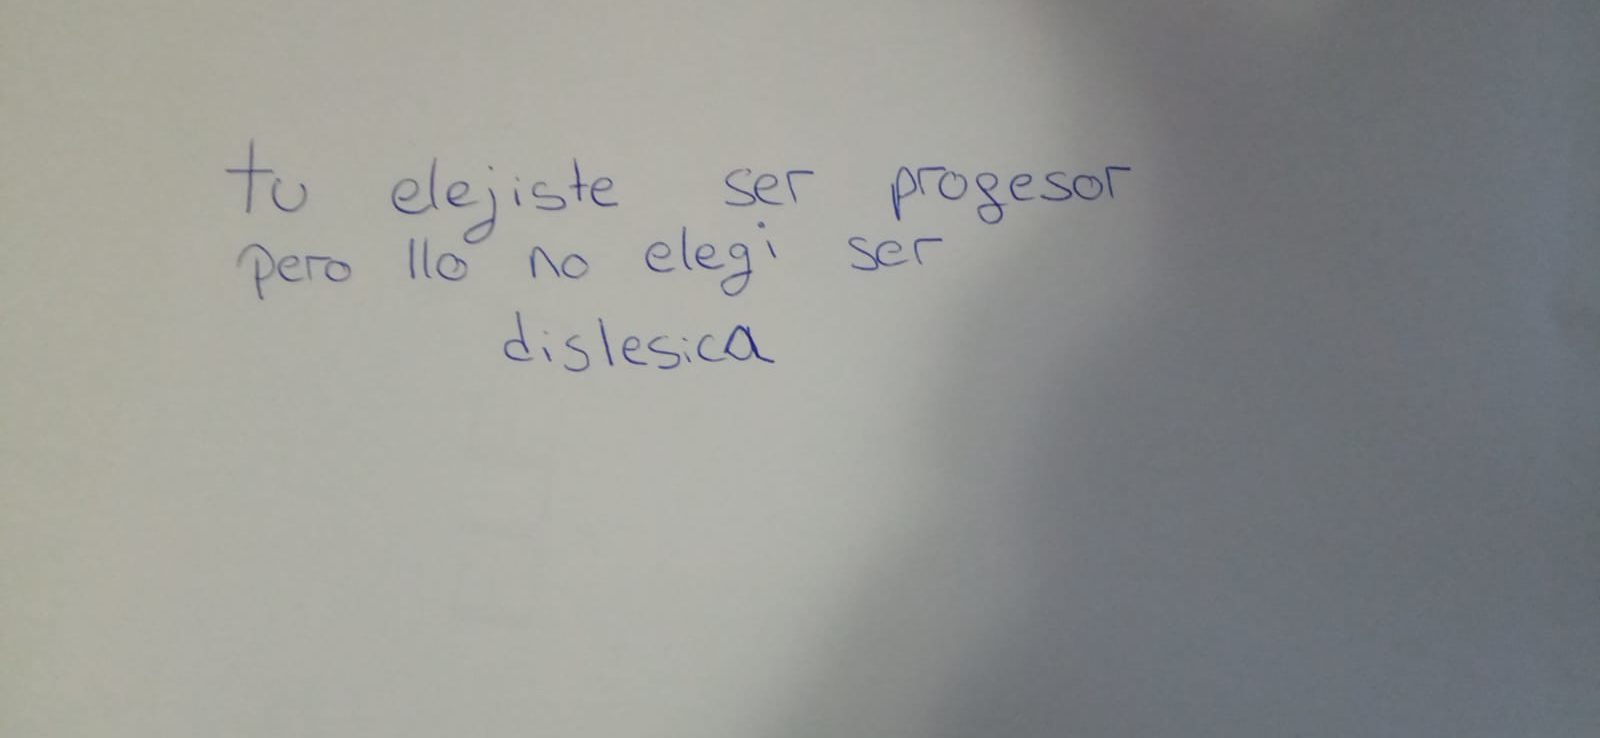 tu elejiste ser progesor
pero llo no elegi ser
dislesica